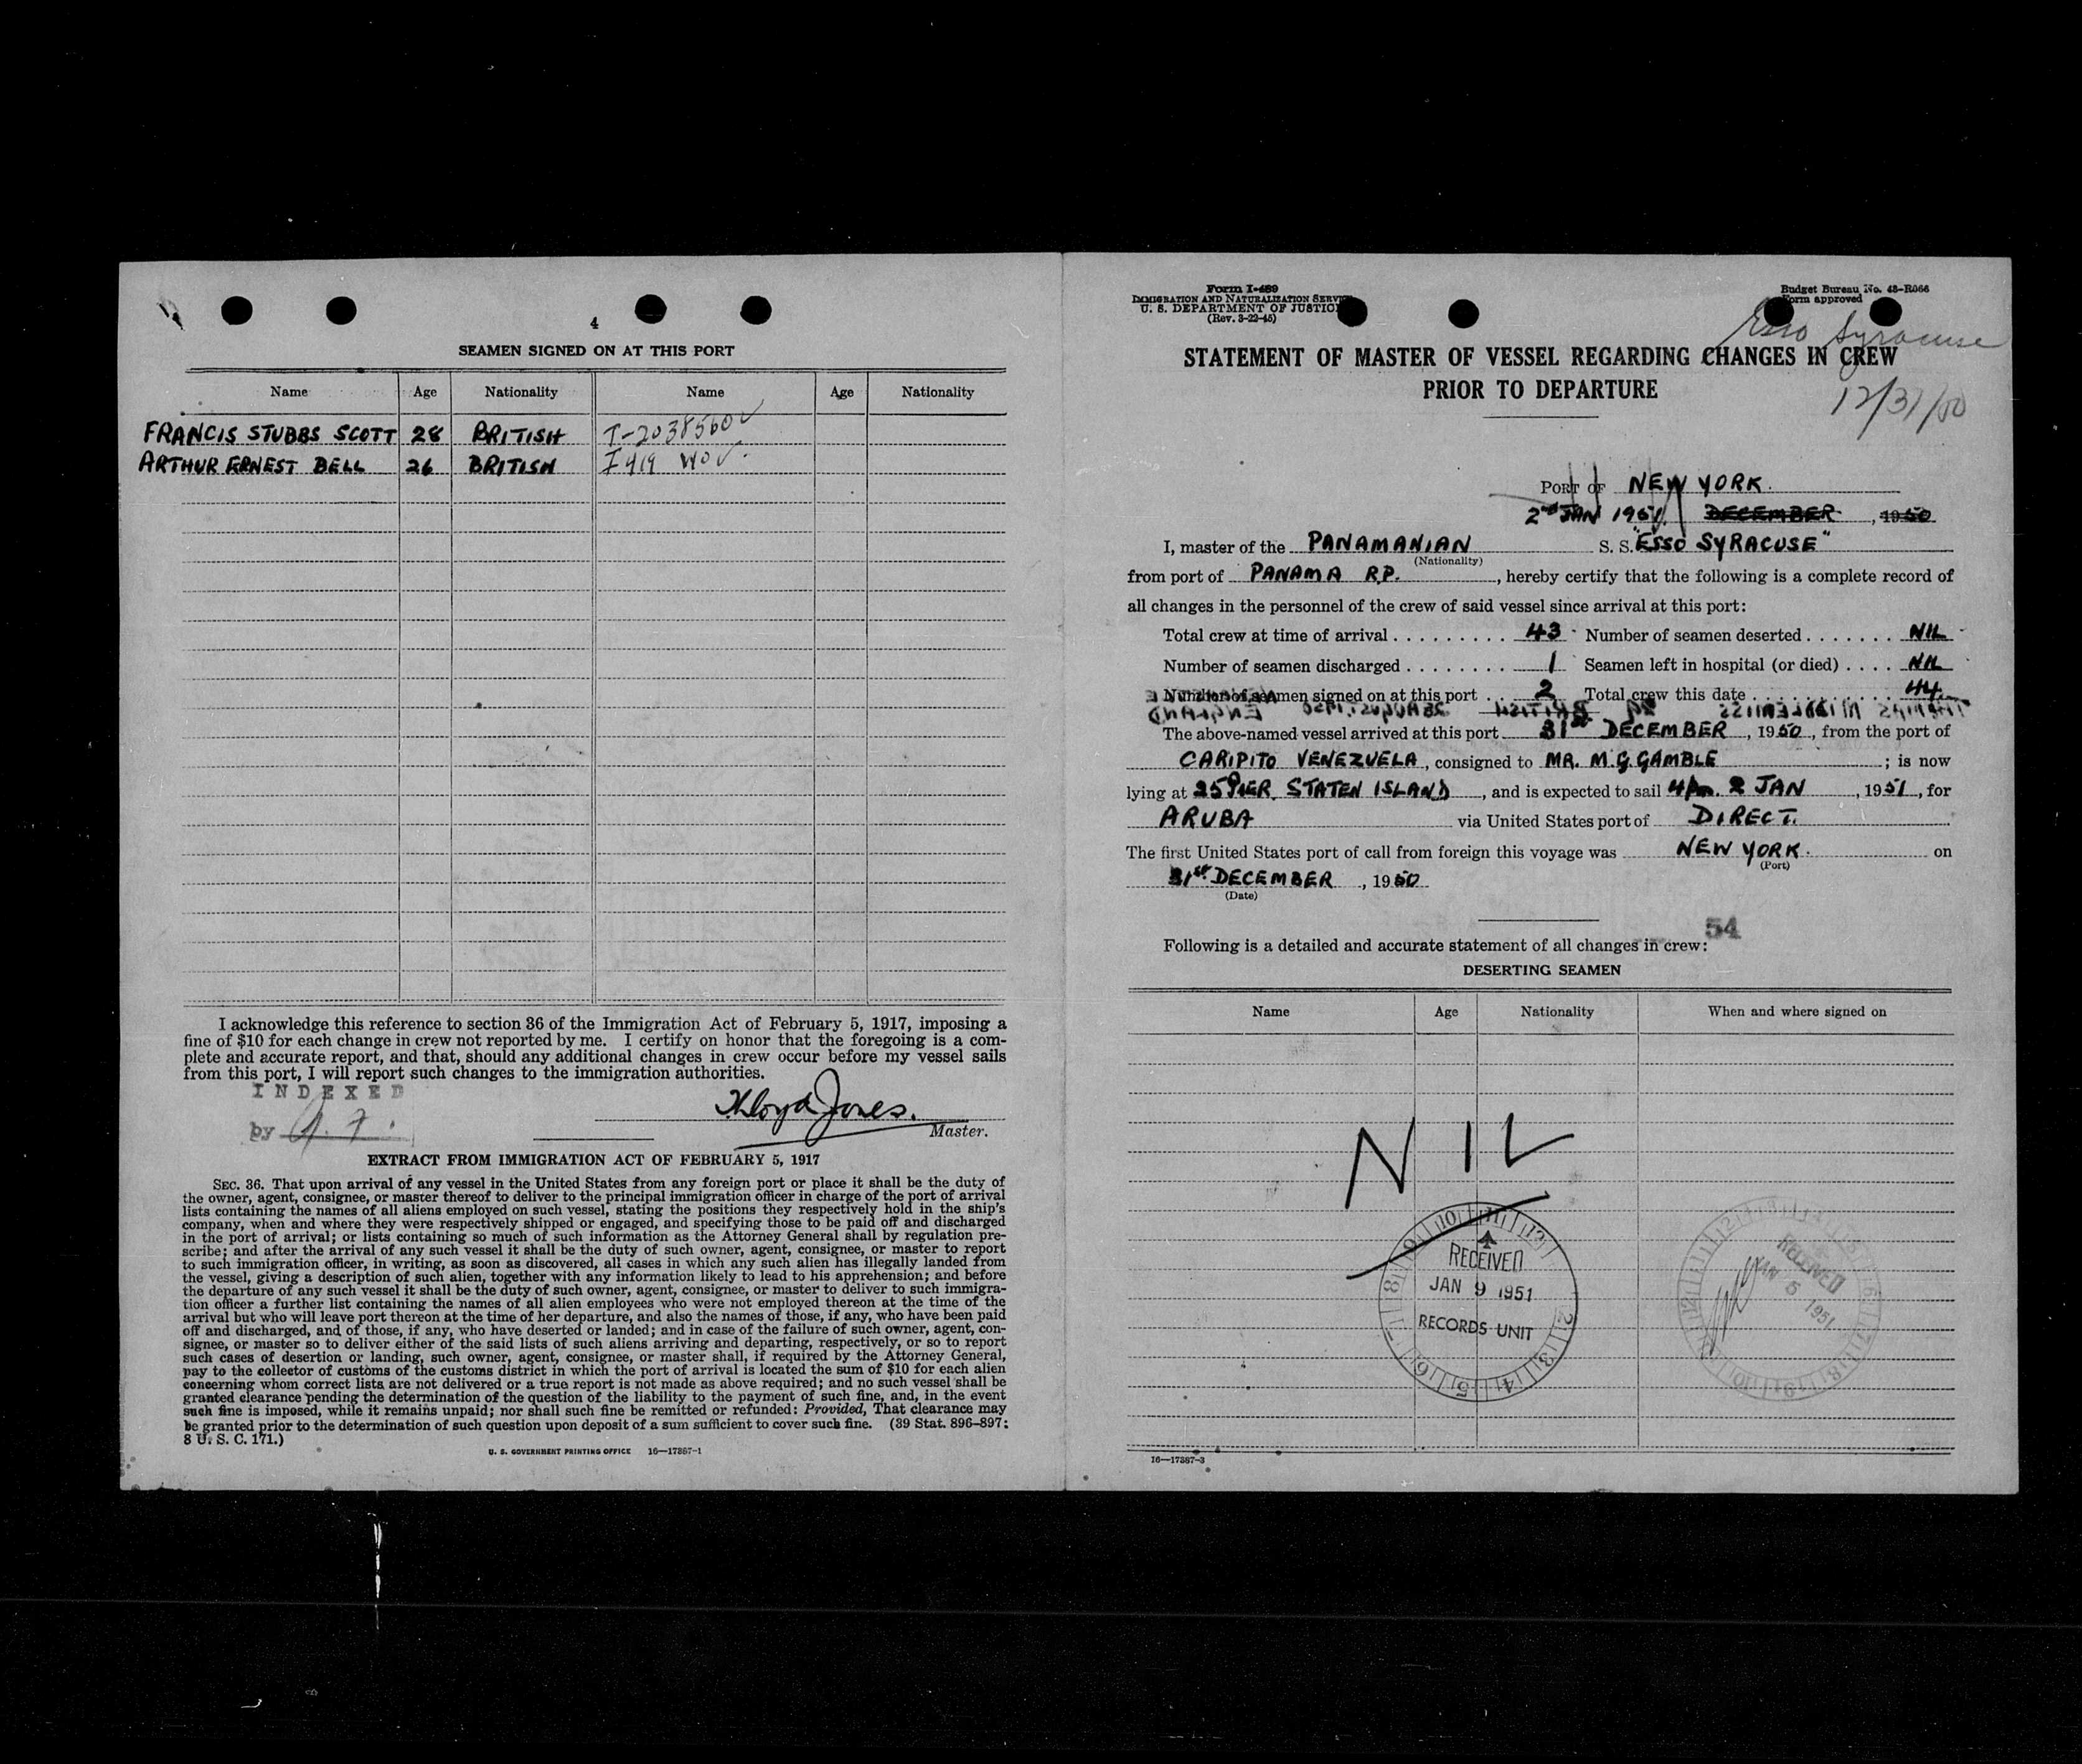 4
SEAMEN SIGNED ON AT THIS PORT
Name Age Nationality Name Age Nationality
FRANCIS STUBBS SCOTT 28 BRITISH T-2038560
ARTHUR ERNEST BELL 26 BRITISH I 419
I acknowledge this reference to section 36 of the Immigration Act of February 5, 1917, imposing a
fine of $10 for each change in crew not reported by me. I certify on honor that the foregoing is a com-
plete and accurate report, and that, should any additional changes in crew occur before my vessel sails
from this port, I will report such changes to the immigration authorities.
INDEXED
by
Lloyd Jones.
Master.
EXTRACT FROM IMMIGRATION ACT OF FEBRUARY 5, 1917
SEC. 36. That upon arrival of any vessel in the United States from any foreign port or place it shall be the duty of
the owner, agent, consignee, or master thereof to deliver to the principal immigration officer in charge of the port of arrival
lists containing the names of all aliens employed on such vessel, stating the positions they respectively hold in the ship's
company, when and where they were respectively shipped or engaged, and specifying those to be paid off and discharged
in the port of arrival; or lists containing so much of such information as the Attorney General shall by regulation pre-
scribe; and after the arrival of any such vessel it shall be the duty of such owner, agent, consignee, or master to report
to such immigration officer, in writing, as soon as discovered, all cases in which any such alien has illegally landed from
the vessel, giving a description of such alien, together with any information likely to lead to his apprehension; and before
the departure of any such vessel it shall be the duty of such owner, agent, consignee, or master to deliver to such immigra-
tion officer a further list containing the names of all alien employees who were not employed thereon at the time of the
arrival but who will leave port thereon at the time of her departure, and also the names of those, if any, who have been paid
off and discharged, and of those, if any, who have deserted or landed; and in case of the failure of such owner, agent, con-
signee, or master so to deliver either of the said lists of such aliens arriving and departing, respectively, or so to report
such cases of desertion or landing, such owner, agent, consignee, or master shall, if required by the Attorney General,
pay to the collector of customs of the customs district in which the port of arrival is located the sum of $10 for each alien
concerning whom correct lists are not delivered or a true report is not made as above required; and no such vessel shall be
granted clearance pending the determination of the question of the liability to the payment of such fine, and, in the event
such fine is imposed, while it remains unpaid; nor shall such fine be remitted or refunded: Provided, That clearance may
be granted prior to the determination of such question upon deposit of a sum sufficient to cover such fine. (39 Stat. 896-897;
8 U. S. C. 171.)
U. S. GOVERNMENT PRINTING OFFICE 16—17387-1
Form I-489
IMMIGRATION AND NATURALIZATION SERVICE
U. S. DEPARTMENT OF JUSTICE
(Rev. 3-22-45)
Budget Bureau No. 43-R066
Form approved
Esso Syracuse
12/31/50
STATEMENT OF MASTER OF VESSEL REGARDING CHANGES IN CREW
PRIOR TO DEPARTURE
PORT OF NEW YORK.
2nd JAN 1951 DECEMBER, 1950
I, master of the PANAMANIAN S. S. "ESSO SYRACUSE"
(Nationality)
from port of PANAMA R.P., hereby certify that the following is a complete record of
all changes in the personnel of the crew of said vessel since arrival at this port:
Total crew at time of arrival . . . . . . . . . 43 Number of seamen deserted . . . . . . . NIL
Number of seamen discharged . . . . . . . . 1 Seamen left in hospital (or died) . . . . NIL
Number of seamen signed on at this port . . 2 Total crew this date . . . . . . . . . . . . 44
The above-named vessel arrived at this port 31st DECEMBER, 1950, from the port of
CARIPITO VENEZUELA, consigned to MR. M.G. GAMBLE; is now
lying at 25 PIER. STATEN ISLAND, and is expected to sail 4pm. 2 JAN, 1951, for
ARUBA via United States port of DIRECT.
The first United States port of call from foreign this voyage was NEW YORK. on
(Port)
31st DECEMBER, 1950
(Date)
54
Following is a detailed and accurate statement of all changes in crew:
DESERTING SEAMEN
Name Age Nationality When and where signed on
NIL
RECEIVED
JAN 9 1951
RECORDS UNIT
RECEIVED
JAN 5 1951
16—17387-3